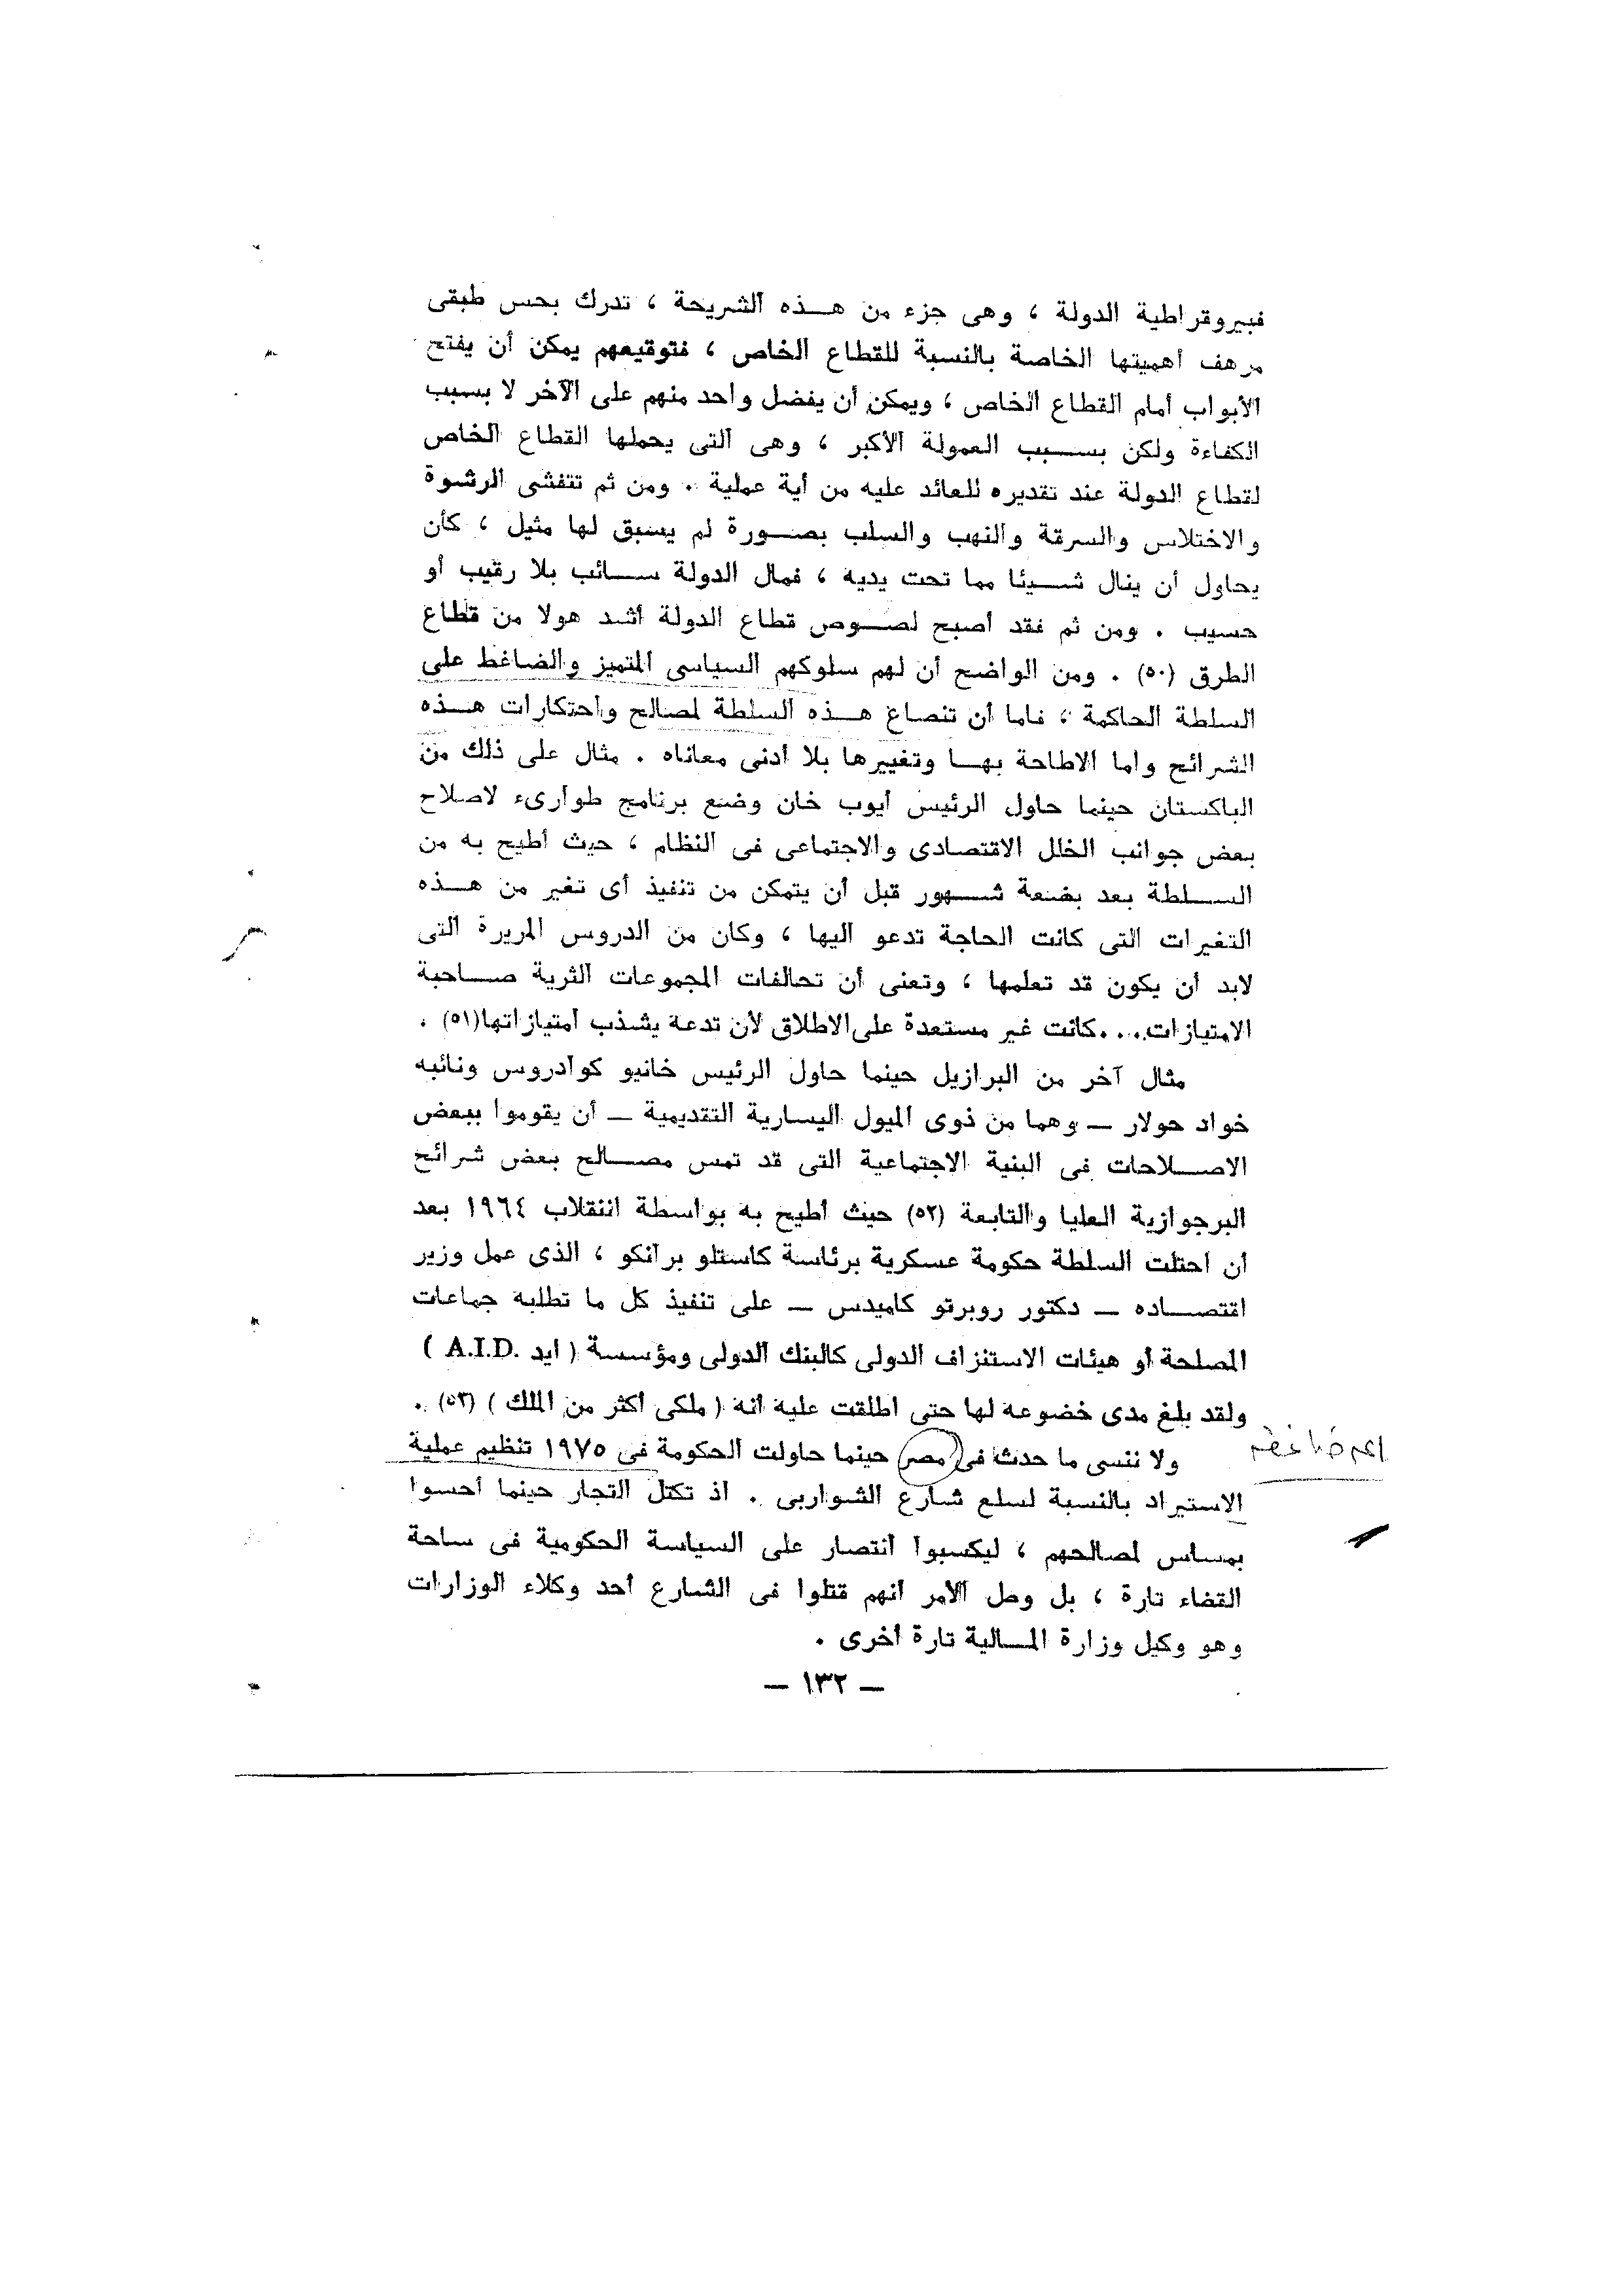 فبيروقراطية الدولة ، وهى جزء من هـــذه الشريحة ، تدرك بحس طبقى
مرهف أهميتها الخاصة بالنسبة للقطاع الخاص ، فتوقيعهم يمكن أن يفتح
الأبواب أمام القطاع الخاص ، ويمكن أن يفضل واحد منهم على الآخر لا بسبب
الكفاءة ولكن بســـبب العمولة الأكبر ، وهى التى يحملها القطاع الخاص
لقطاع الدولة عند تقديره للعائد عليه من أية عملية . ومن ثم تتفشى الرشوة
والاختلاس والسرقة والنهب والسلب بصـــورة لم يسبق لها مثيل ، كأن
يحاول أن ينال شـــيئا مما تحت يديه ، فمال الدولة ســـائب بلا رقيب أو
حسيب . ومن ثم فقد أصبح لصـــوص قطاع الدولة أشد هولا من قطاع
الطرق (٥٠) . ومن الواضح أن لهم سلوكهم السياسى المتميز والضاغط على
السلطة الحاكمة ، فاما أن تنصاع هـــذه السلطة لمصالح واحتكارات هـــذه
الشرائح واما الاطاحة بهـــا وتغييرها بلا أدنى معاناه . مثال على ذلك من
الباكستان حينما حاول الرئيس أيوب خان وضع برنامج طوارىء لاصلاح
بعض جوانب الخلل الاقتصادى والاجتماعى فى النظام ، حيث أطيح به من
الســـلطة بعد بضعة شـــهور قبل أن يتمكن من تنفيذ أى تغير من هـــذه
التغيرات التى كانت الحاجة تدعو اليها ، وكان من الدروس المريرة التى
لابد أن يكون قد تعلمها ، وتعنى أن تحالفات المجموعات الثرية صـــاحبة
الامتيازات....كانت غير مستعدة على الاطلاق لأن تدعة يشذب امتيازاتها(٥١) .
مثال آخر من البرازيل حينما حاول الرئيس خانيو كوادروس ونائبه
خواد حولار — وهما من ذوى الميول اليسارية التقديمية — أن يقوموا ببعض
الاصـــلاحات فى البنية الاجتماعية التى قد تمس مصـــالح بعض شرائح
البرجوازية العليا والتابعة (٥٢) حيث أطيح به بواسطة اننقلاب ١٩٦٤ بعد
أن احتلت السلطة حكومة عسكرية برئاسة كاستلو برانكو ، الذى عمل وزير
اقتصـــاده — دكتور روبرتو كاميدس — على تنفيذ كل ما تطلبه جماعات
المصلحة أو هيئات الاستنزاف الدولى كالبنك الدولى ومؤسسة ( ايد A.I.D. )
ولقد بلغ مدى خضوعه لها حتى اطلقت عليه انه ( ملكى أكثر من الملك ) (٥٣) .
ولا ننسى ما حدث فى مصر حينما حاولت الحكومة فى ١٩٧٥ تنظيم عملية
الاستيراد بالنسبة لسلع شارع الشواربى . اذ تكتل التجار حينما أحسوا
بمساس لمصالحهم ، ليكسبوا انتصار على السياسة الحكومية فى ساحة
القضاء تارة ، بل وصل الأمر انهم قتلوا فى الشارع أحد وكلاء الوزارات
وهو وكيل وزارة المـــالية تارة أخرى .
— ١٣٢ —